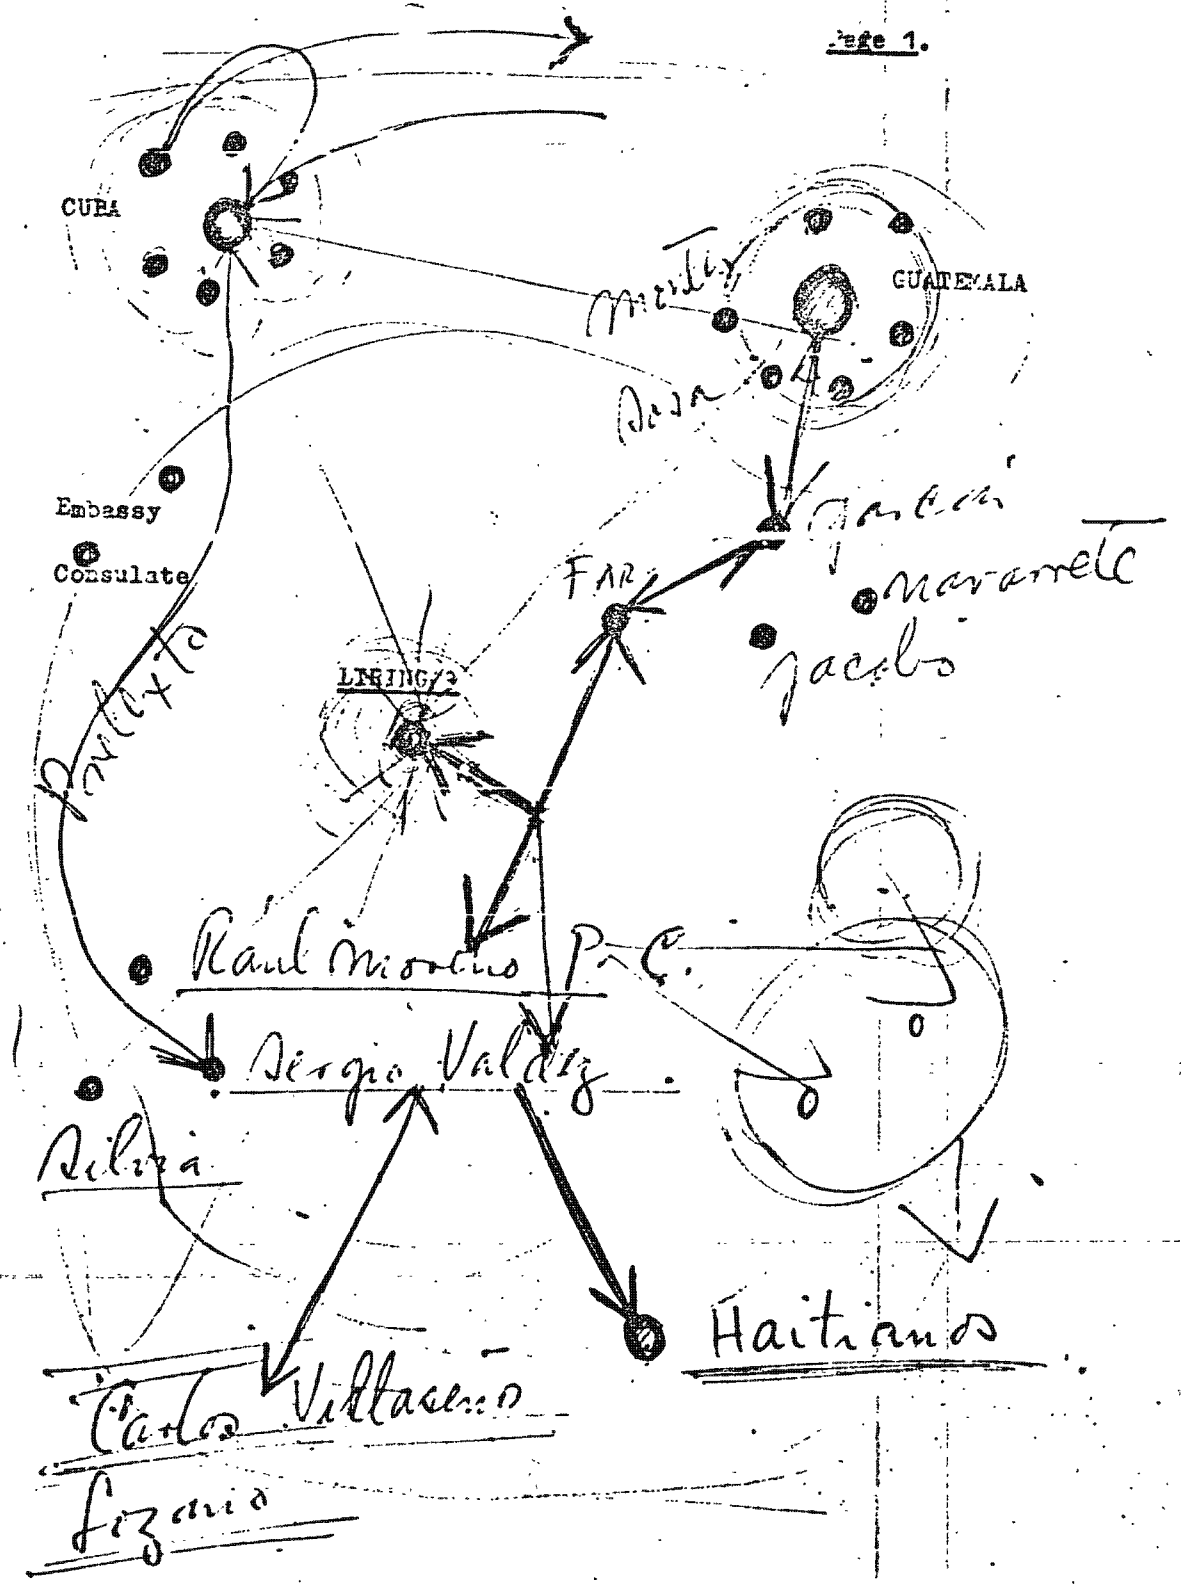 Page 1.
CUBA
GUATEMALA
Embassy
Consulate
FAR
Navarrete
Jacobo
LIRING/3
Raul Moreno
P. C.
Sergio Valdez
Silvia
Haitianos
Carlos Villaseño
Lozano